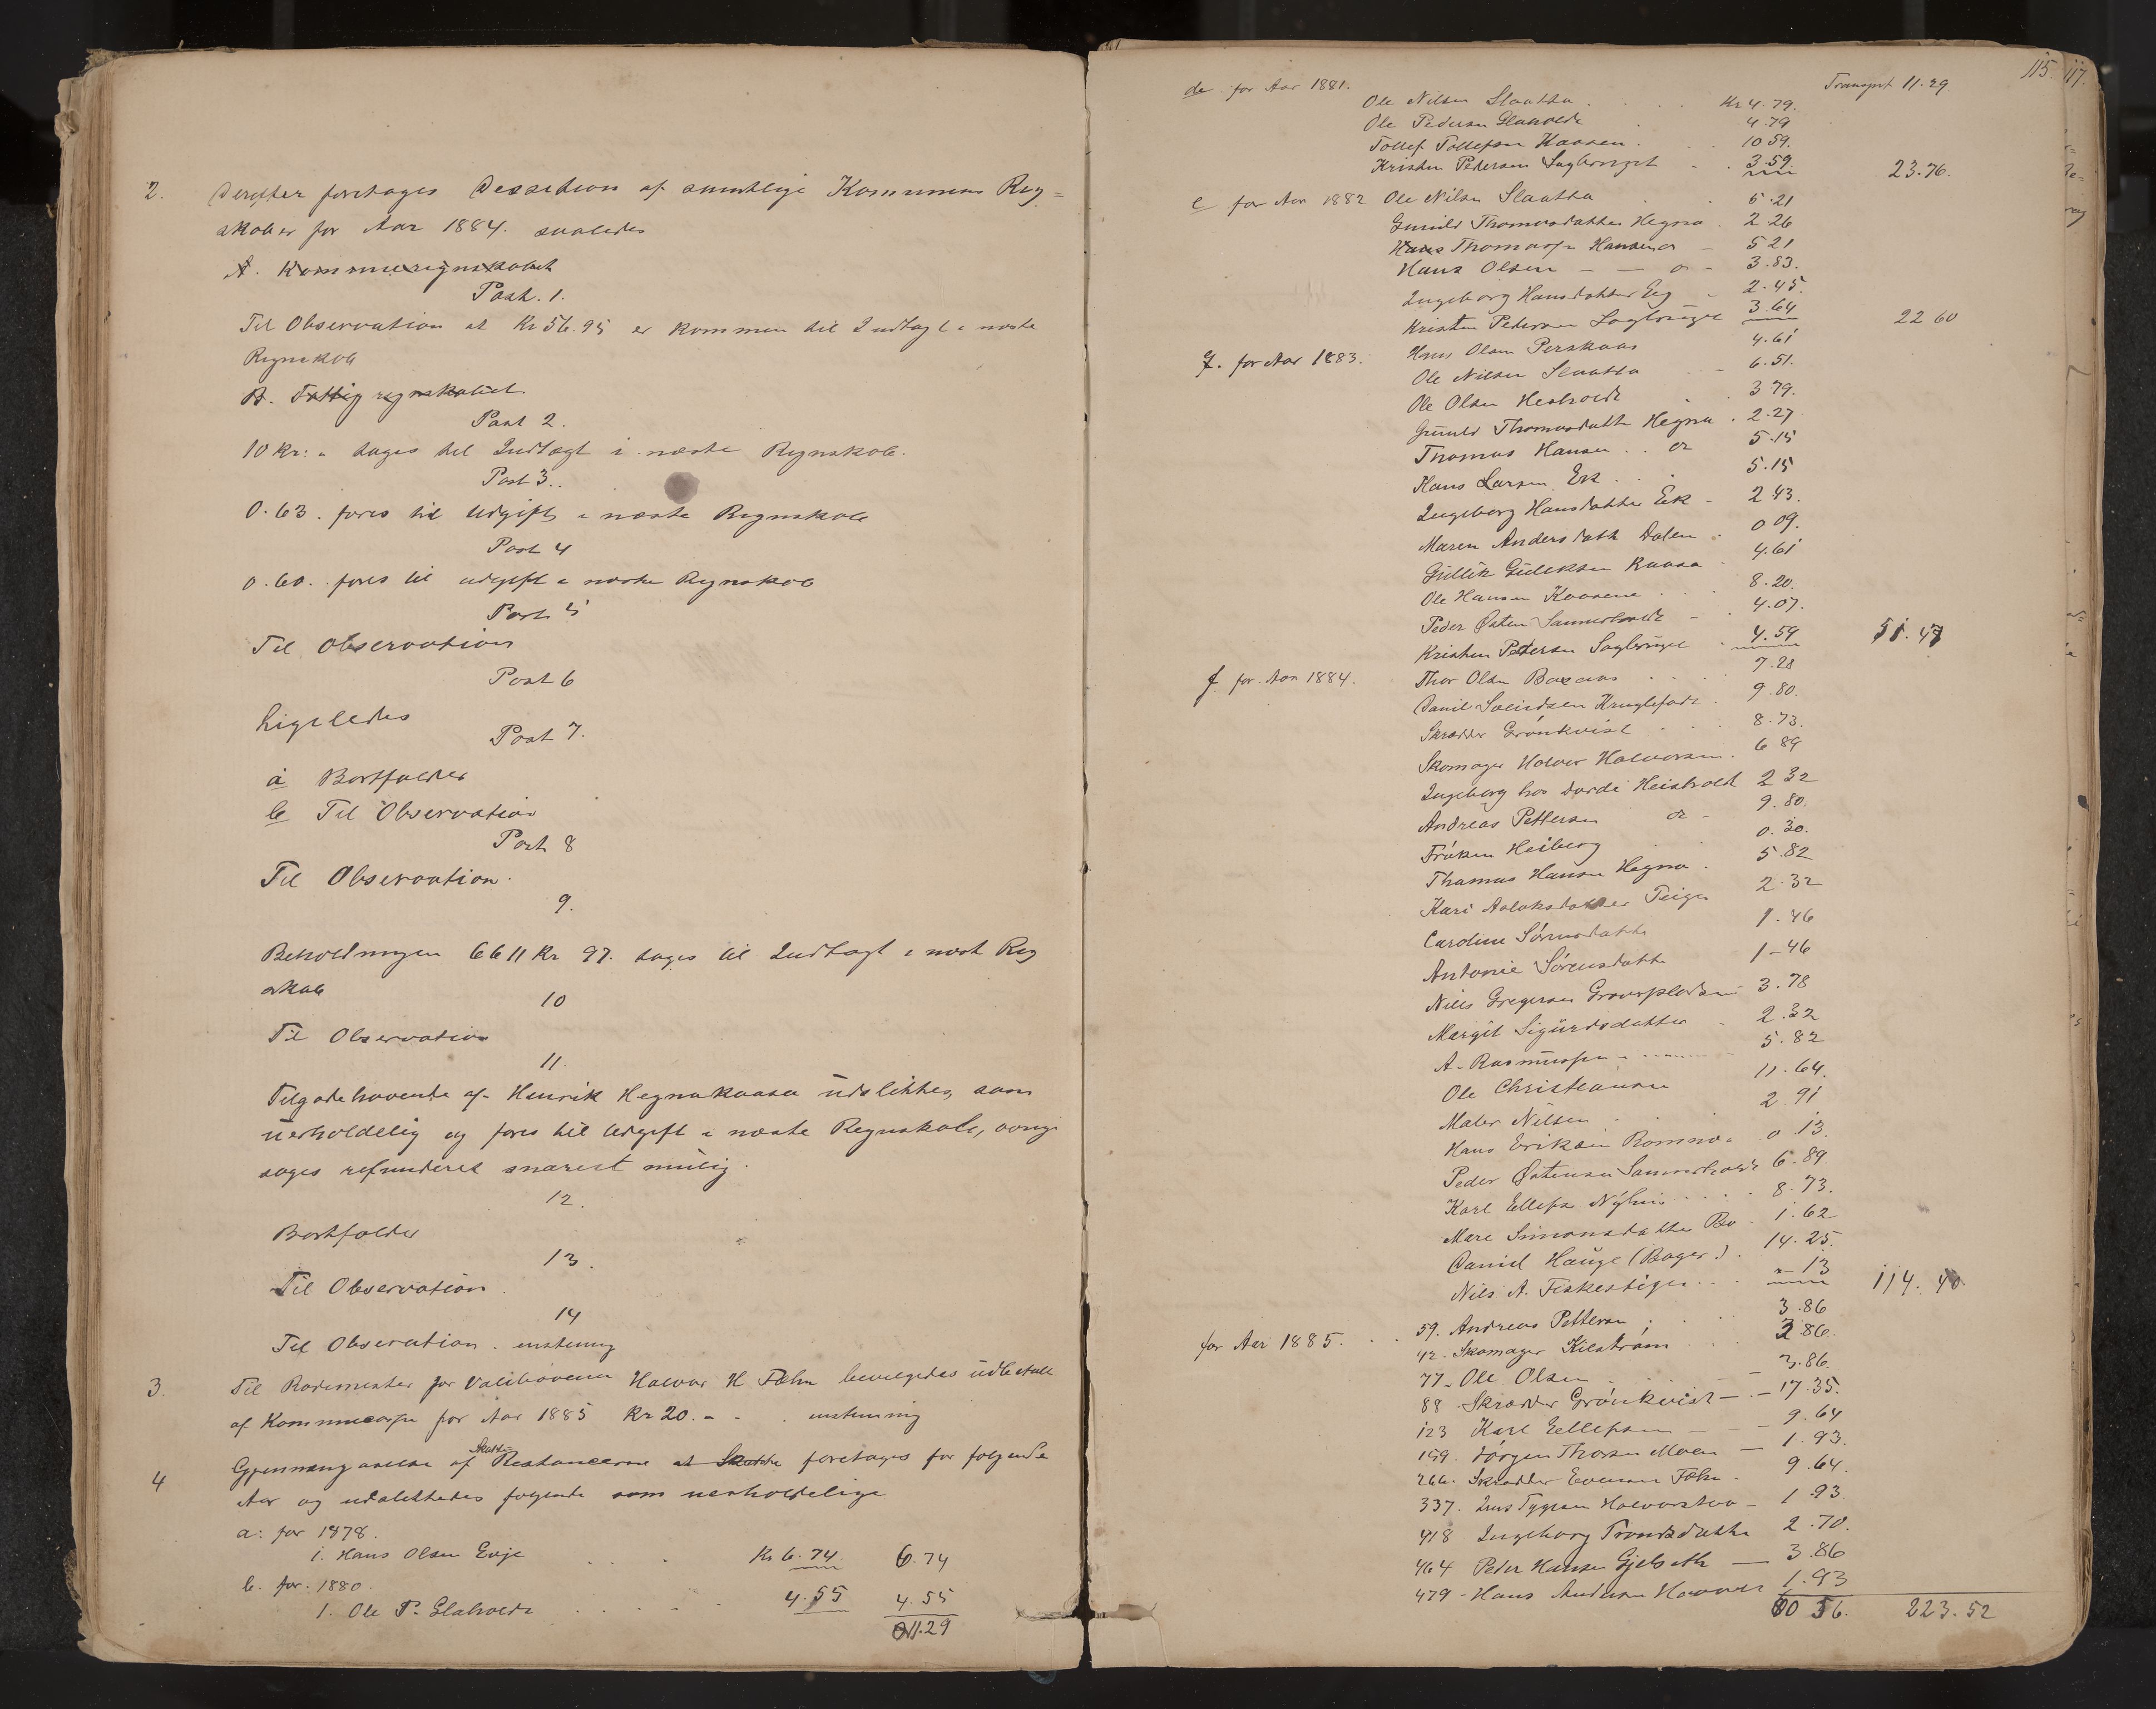 2. Derefter foretages Dessition af samtlige Kommunens Reg=
skaber for Aar 1884. saaledes
A. Kommuneregnskabet
Post. 1.
Til Observation at Kr 56.95 er kommen til Indtægt i næste
Regnskab
B. Fattigregnskabet
Post 2.
10 Kr: " tages til Indtægt i næste Regnskab.
Post 3..
0.63. føres til Udgift i næste Regnskab
Post 4
0.60. føres til udgift i næste Regnskab
Post 5
Til Observation
Post 6
Ligeledes
Post 7.
a Bortfalder
b Til Observation
Post 8
Til Observation.
9.
Beholdningen 6611 Kr 97. tages til Indtægt i næst Reg
skab
10
Til Observation
11.
Tilgodehavende af Henrik Hegnakaasa udslettes, som
uerholdelig og føres til Udgift i næste Regnskab, øvrige
søges refunderet snarest mulig.
12.
Bortfalder
13.
Til Observation
14
Til Observation. enstemmig
3. Til Rodemester for Valebøveien Halvor H Fæhn bevilgedes udbetalt
af Kommunecassen for Aar 1885 Kr 20. - enstemmig
4 Gjennemgaaelse af Skatte- Restancerne at Skatte foretages for følgende
Aar og udslettedes følgende som uerholdelige
a: for 1878.
1. Hans Olsen Evje Kr 6.74. 6.74
b. for. 1880.
1. Ole P. Slaholdt 4.55 4.55
11.29
115. 117.
Transport 11.29.
de for Aar 1881.
Ole Nilsen Slaatta Kr 4.79.
Ole Pedersen Slaholdt 4.79
Tollef Tollefsen Haasen. 10 59.
Kristen Pedersen Sagbrugst 3.59. 23.76.
e for Aar 1882 Ole Nilsen Slaatta 5.21
Gunild Thomasdatter Hegna 2 26
Hans Thomassen Hansen do 5 21
Hans Olsen - - do - 3.83.
Ingeborg Hansdatter Eeg 2.45.
Kristen Pedersen Sagbruget 3.64 22 60
f. for Aar 1883. Hans Olsen Perskaas 4.61
Ole Nilsen Slaatta 6.51.
Ole Olsen Hesholdt 3 79.
Gunild Thomasdatter Hegna. 2.27
Thomas Hansen.. do 5.15
Hans Larsen Eek 5.15
Ingeborg Hansdatter Eek - 2 43.
Maren Andersdatt Dalen. 0 09.
Gullik Gulliksen Kaasa 4.61
Ole Hansen Kaasene 8.20.
Peder Østen Sannerholdt 4.07.
Kristen Pedersen Sagbruget 4.59 51.47
f. for Aar 1884. Thor Olsen Baseaas 7.28
Daniel Svendsen Kruglefode 9.80.
Skræder Grönkvist 8.73.
Skomager Halvor Halvorsen. 6 89
Ingeborg hos Tordi Heisholdt 2 32
Andreas Pettersen do - 9.80.
Frøken Heiberg 0.30.
Thomas Hansen Hegna. 5.82
Kari Aslaksdatter Teigen 2.32
Caroline Sörensdatte 1.46
Antonie Sörensdatte 1-46
Nils Gregersen Gravspladsen 3.78
Margit Sigurdsdatter 2.32
A. Rasmussen - 5.82
Ole Christiansen 11.64.
Maler Nilsen 2.91
Hans Eriksen Romnes 0 13.
Peder Østensen Sannerholdt 6.89.
Karl Ellefse Nyhus 8.73.
Mari Simonsdatter Bø 1.62
Daniel Hauge (Bager). 14.25.
Nils A. Fiskestigen "-13 114.40
for Aar 1885. 59. Andreas Pettersen 3.86
42. Skomager Kilström 3.86.
77. Ole Olsen 3.86.
88 Skræder Grönkvist - 17.35.
123 Karl Eellefsen - 9.64
159. Jörgen Thorsen Moen - 1.93.
266. Skrædder Evensen Fæhn. 9.64.
337. Jens Tygesen Halvorstva - 1.93
418 Ingeborg Trondsdatte 2.70.
464 Peder Hansen Gjelseth - 3.86
479 - Hans Andersen 1.93
60 56. 223.52